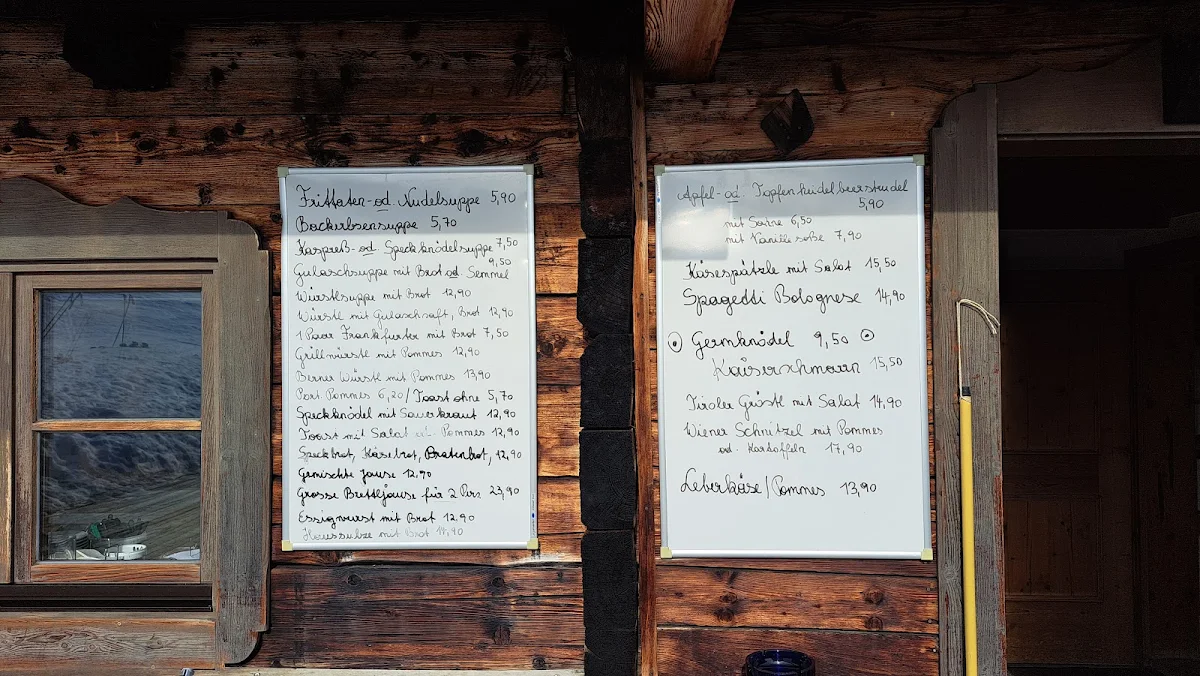 Frittaten-od. Nudelsuppe 5,90
Backerbsensuppe 5,70
Kaspreß-od. Speckknödelsuppe 7,50
Gulaschsuppe mit Brot od. Semmel 9,50
Würstlsuppe mit Brot 12,90
Würstl mit Gulaschsaft, Brot 12,90
1 Paar Frankfurter mit Brot 7,50
Grillwürstl mit Pommes 12,90
Berner Würstl mit Pommes 13,90
Port. Pommes 6,20/Toast ohne 5,70
Speckknödel mit Sauerkraut 12,90
Toast mit Salat od. Pommes 12,90
Speckbrot, Käsebrot, Bratenbrot, 12,90
Gemischte Jause 12,90
Grosse Brettljause für 2 Pers 23,90
Essigwurst mit Brot 12,90
Haussulze mit Brot 14,90
Apfel-od. Topfenheidelbeerstrudel
5,90
mit Sahne 6,50
mit Vanillesoße 7,90
Käsespätzle mit Salat 15,50
Spagetti Bolognese 14,90
Germknödel 9,50
Kaiserschmarrn 15,50
Tiroler Gröstl mit Salat 14,90
Wiener Schnitzel mit Pommes
od. Kartoffeln 17,90
Leberkäse/Pommes 13,90